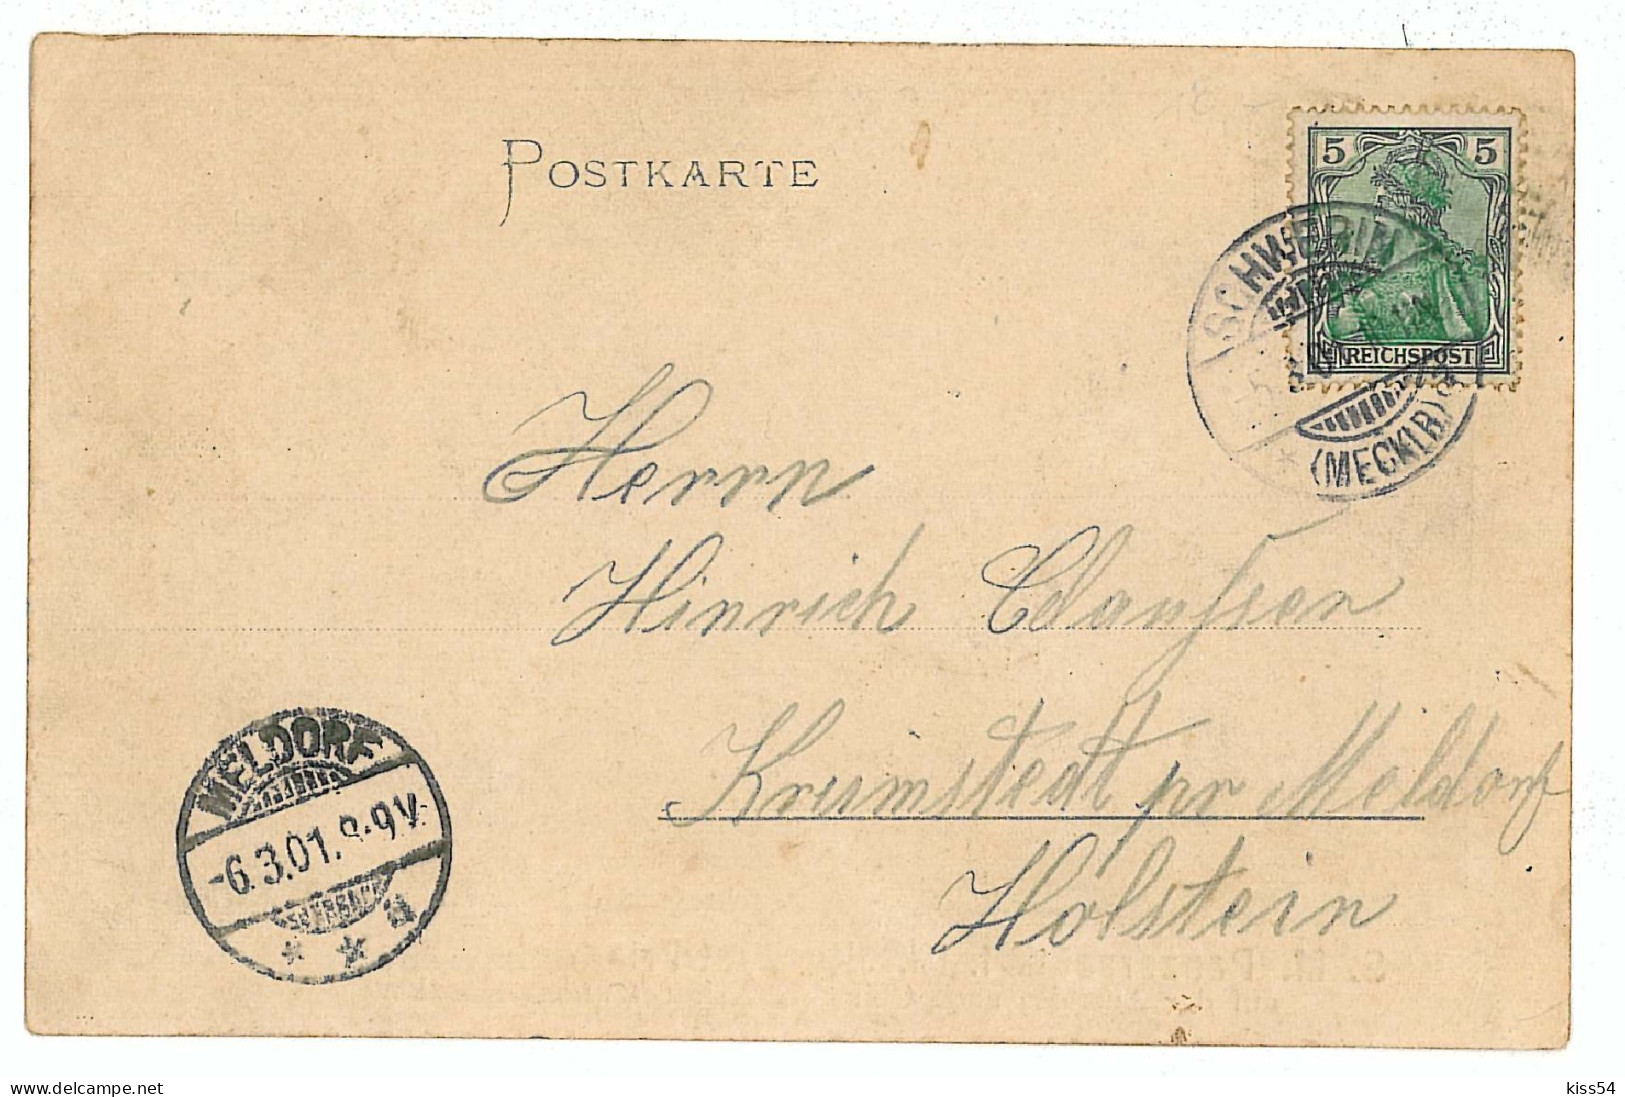 POSTKARTE
5 5
REICHSPOST
SCHWERIN
(MECKLB)
Herrn
Hinrich Claussen
Krumstedt pr Meldorf
Holstein
MELDORF
-6.3.01. 8-9V.
a
delcampe.net
kiss54